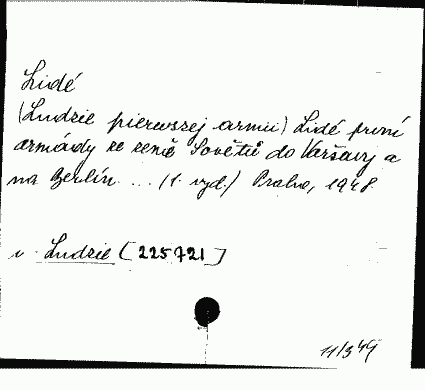 Lidé
(Ludzie pierwszej armii) Lidé první
armády ze země Sovětů do Varšavy a
na Berlín ... (1. vyd.) Praha, 1948.
v. Ludzie [225721]
11/3 49